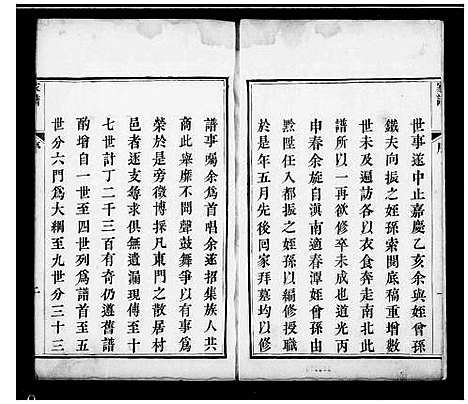 世事遂中止嘉慶乙亥余與姪曾孫
鐵夫向振之姪孫索閱底稿重增數
世未及遍訪各以衣食奔走南北此
譜所以一再欲修卒未成也道光丙
申春余旋自滇南適春潭姪曾孫由
黔陞任入都振之姪孫以編修授職
於是年五月先後回家拜墓均以修
譜事囑余爲首唱余遂招集族人共
商此舉靡不閧聲鼓舞爭以有事爲
榮於是旁徵博採凡東門之散居村
邑者逐支尋求俱無遺漏現傳至十
七世計丁二千三百有奇仍遵舊譜
酌增自一世至四世列爲譜首至五
世分六門爲大綱至九世分三十三
家譜
序